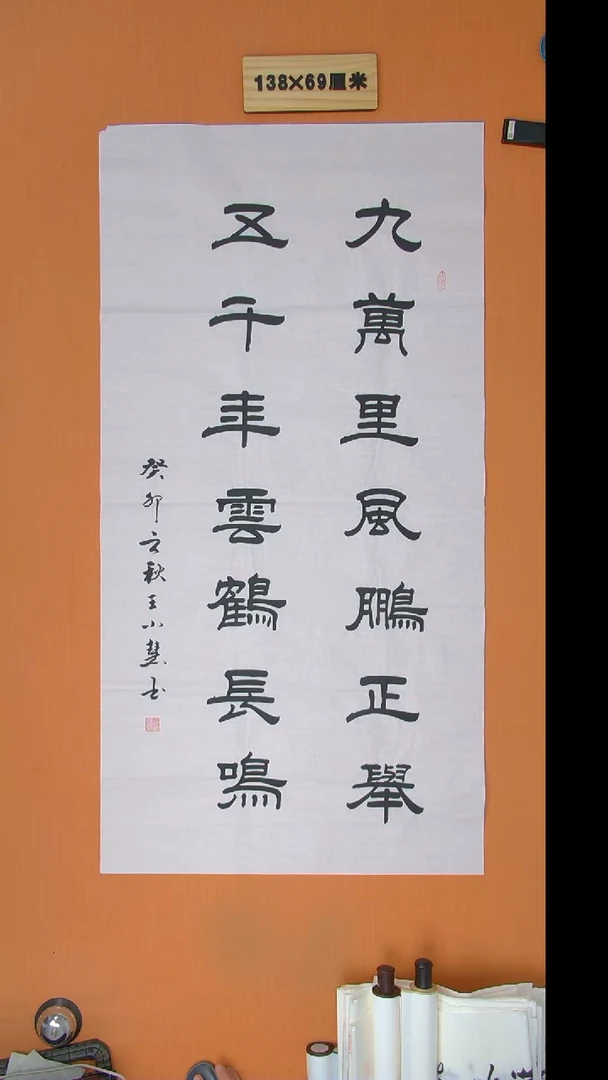 138×69厘米
九萬里風鵬正舉
五千年雲鶴長鳴
癸卯立秋王小慧书